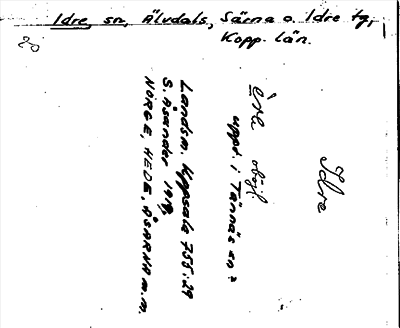 Idre, sn, Älvdals, Särna o. Idre tg,
Kopp. län.
20
Idre
èrlə oböjl.
uppt. i Tännäs sn?
Landsm. Uppsala 755:29
S. Åsander 1919.
NORGE, HEDE, ÅSARNA m.m.